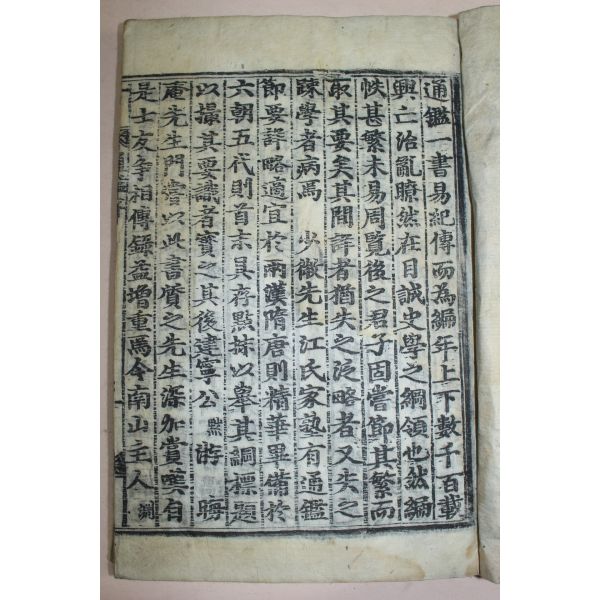 通鑑一書易紀傳而為編年上下數千百載
興亡治亂瞭然在目誠史學之綱領也然編
帙甚繁未易周覽後之君子固嘗節其繁而
取其要矣其間詳者猶失之泛略者又失之
踈學者病焉 少微先生江氏家塾有通鑑
節要詳略適宜於兩漢隋唐則精華畢備於
六朝五代則首末具存點抹以舉其綱標題
以撮其要識者寶之其後建寧公默游晦
庵先生門嘗以此書質之先生深加賞嘆自
是士友爭相傳錄益增重焉今南山主人淵